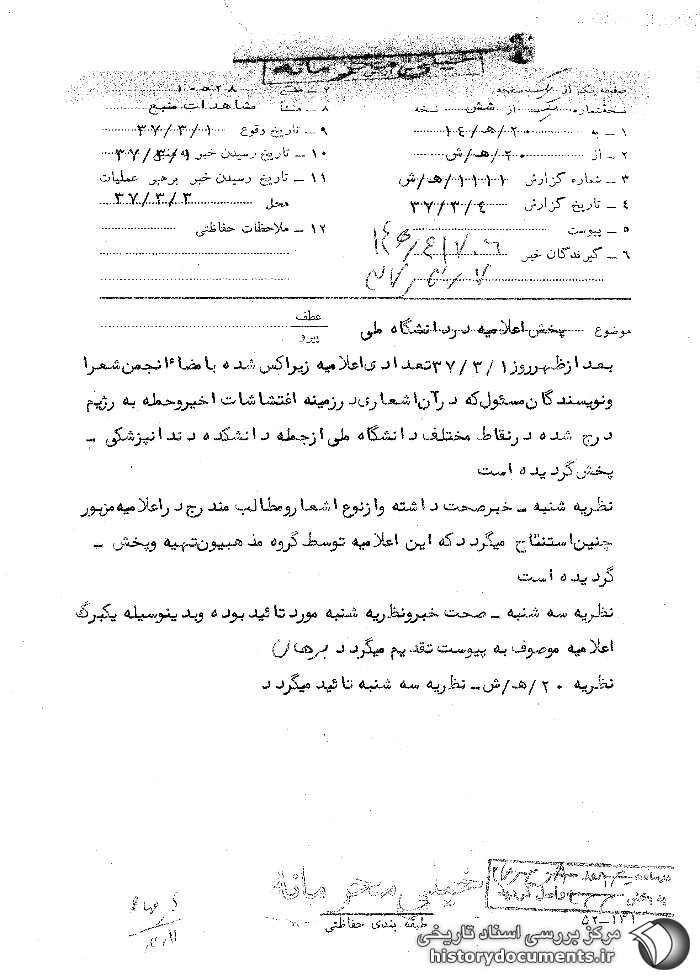 خیلی محرمانه
صفحه یک از یک صفحه
نسخه شماره یک از شش نسخه
۱ ــ به ۲۰/هـ/۱۴
۲ ــ از ۲۰/هـ/ش
۳ ــ شماره گزارش ۱۱۱۱/هـ/ش
۴ ــ تاریخ گزارش ۳۷/۳/۴
۵ ــ پیوست
۶ ــ گیرندگان خبر
۱۰۵۲۸
۸ ــ منشأ مشاهدات منبع
۹ ــ تاریخ وقوع ۳۷/۳/۱
۱۰ ــ تاریخ رسیدن خبر به منبع ۳۷/۳/۱
۱۱ ــ تاریخ رسیدن خبر برهبر عملیات
محل ۳۷/۳/۳
۱۲ ــ ملاحظات حفاظتی
موضوع پخش اعلامیه در دانشگاه ملی
عطف
پیرو
بعد از ظهر روز ۳۷/۳/۱ تعدادی اعلامیه زیراکس شده با مضاء انجمن شعرا
و نویسندگان مسئول که در آن اشعاری در زمینه اغتشاشات اخیر و حمله به رژیم
درج شده در نقاط مختلف دانشگاه ملی از جمله دانشکده دندانپزشکی ــ
پخش گردیده است
نظریه شنبه ــ خبر صحت داشته و از نوع اشعار و مطالب مندرج در اعلامیه مزبور
چنین استنتاج میگردد که این اعلامیه توسط گروه مذهبیون تهیه و پخش ــ
گردیده است
نظریه سه شنبه ــ صحت خبر و نظریه شنبه مورد تائید بوده و بدینوسیله یکبرگ
اعلامیه موصوف به پیوست تقدیم میگردد برهان
نظریه ۲۰/هـ/ش ــ نظریه سه شنبه تائید میگردد
خیلی محرمانه
طبقه بندی حفاظتی
۵۲ــ۱۳۱
مرکز بررسی اسناد تاریخی
historydocuments.ir